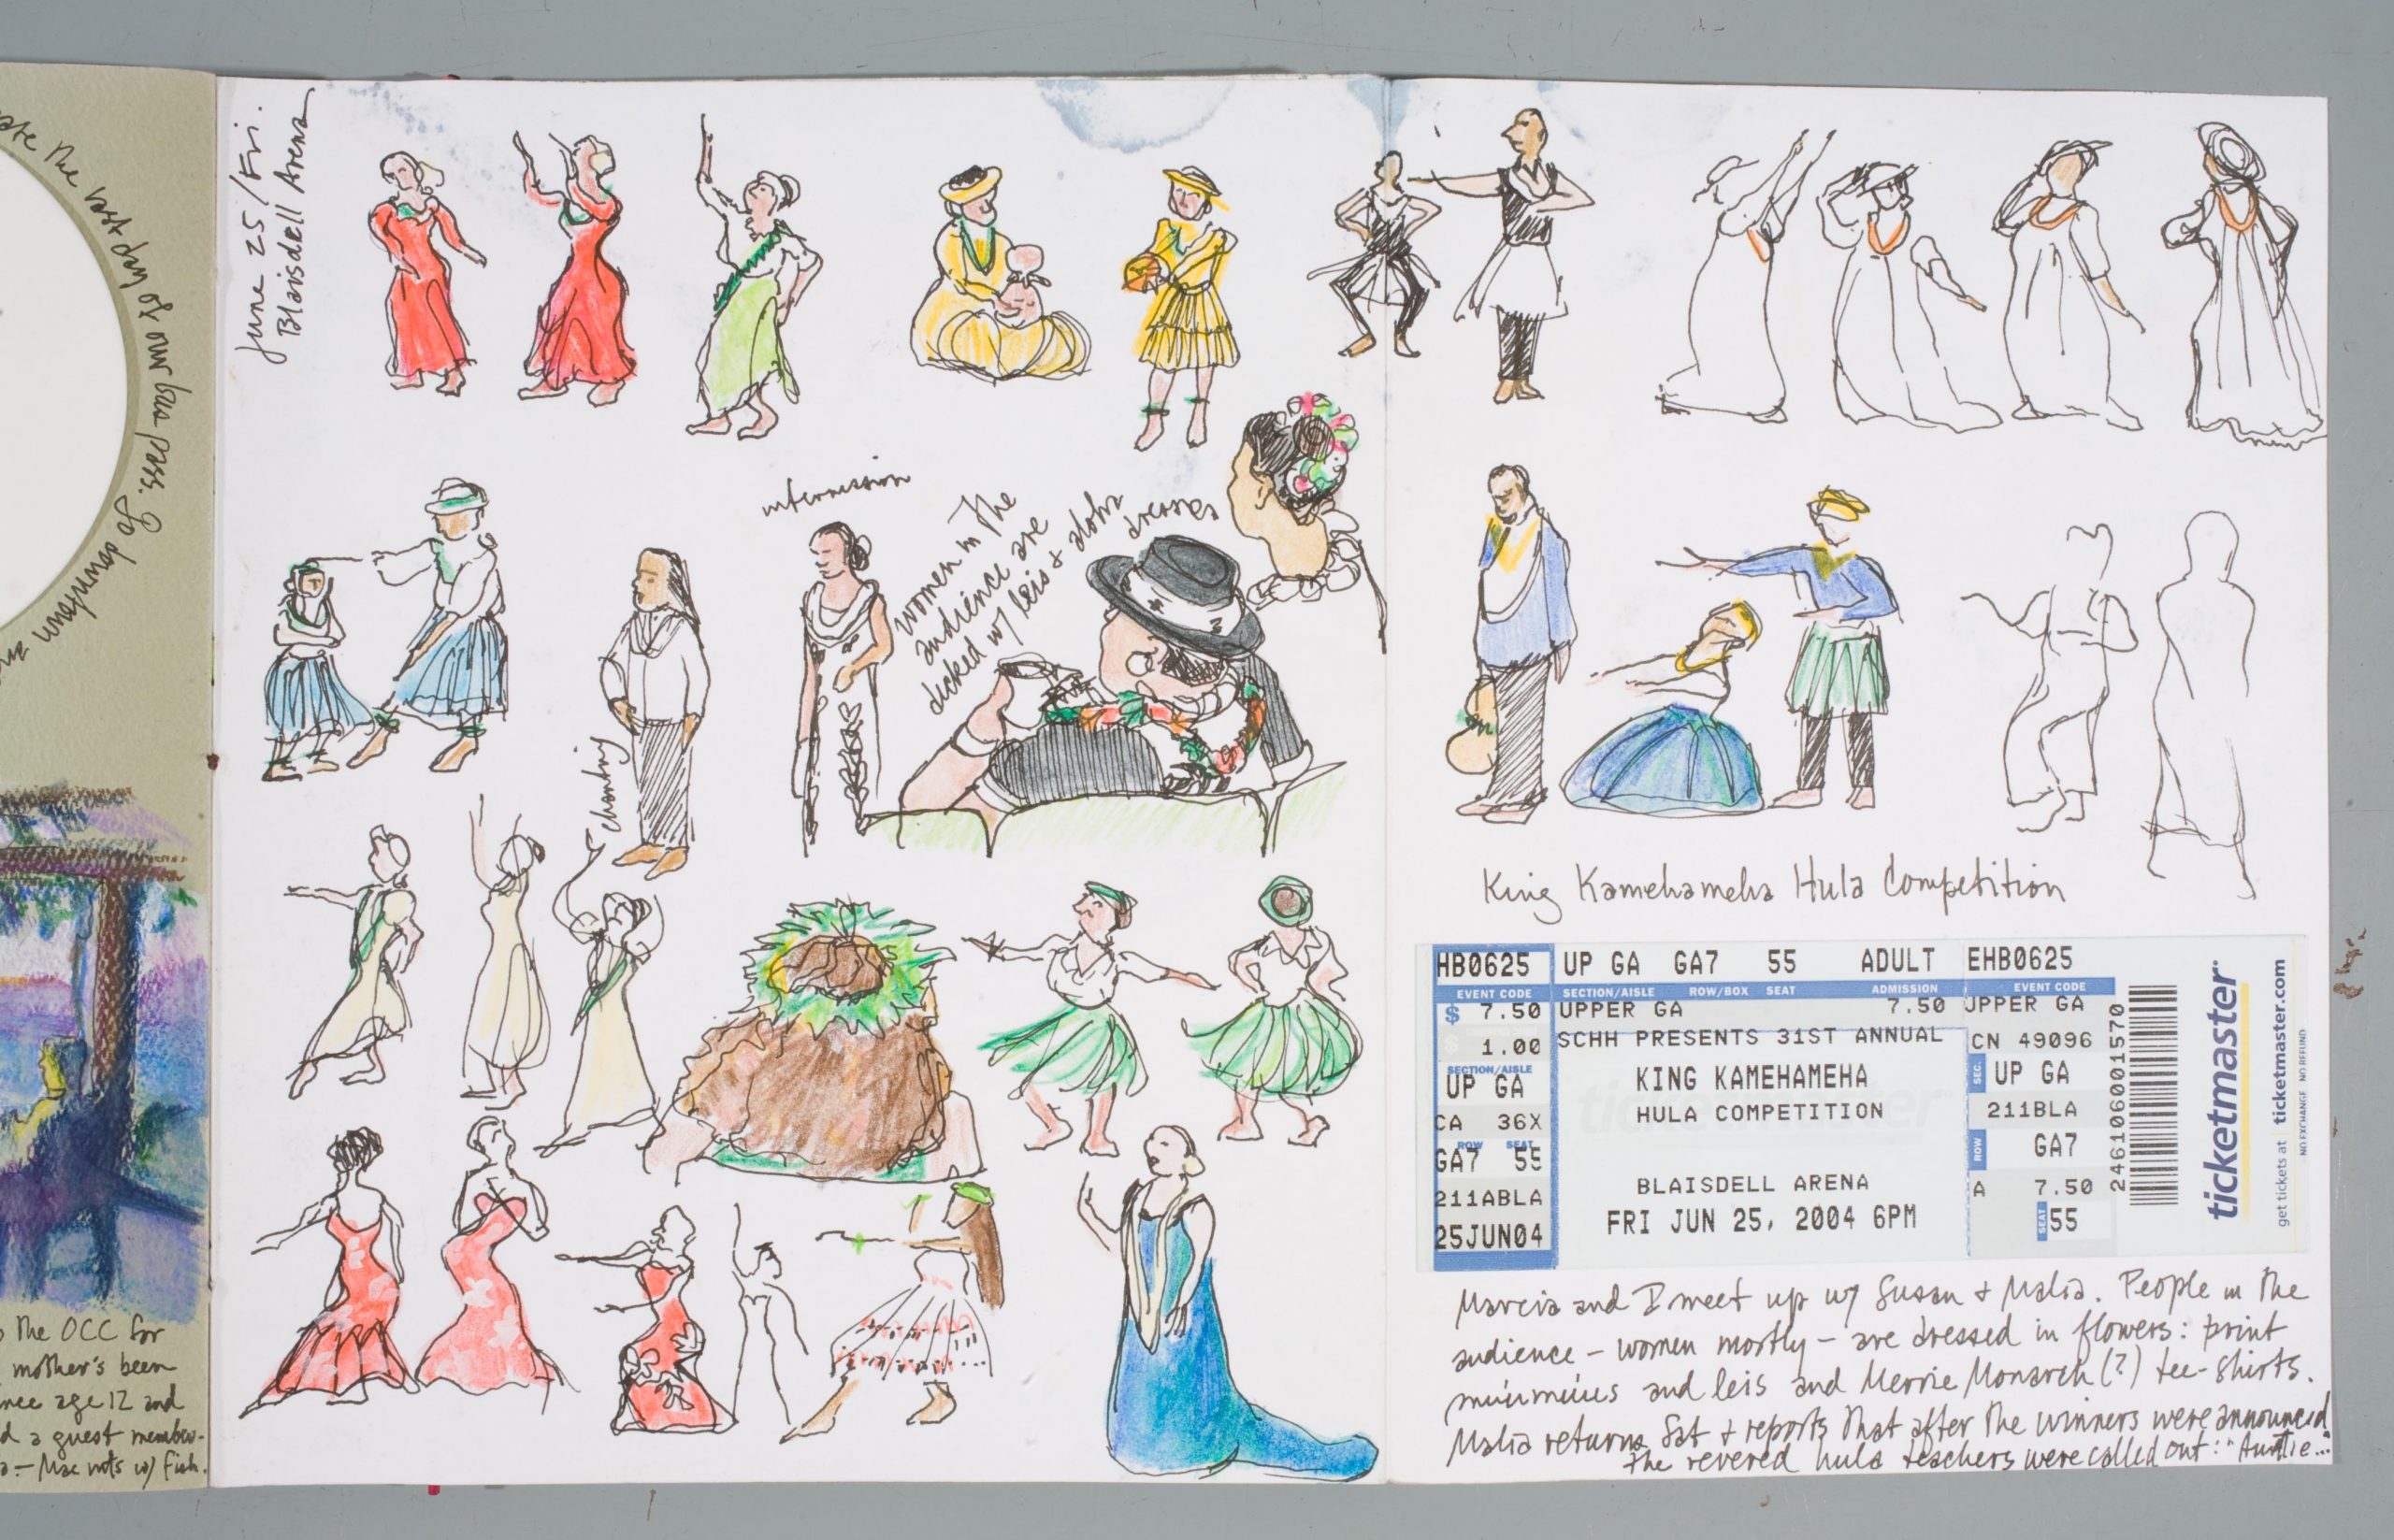 ate the last day of our bus-pass. Go downtown
the OCC for
mother's been
age 12 and
a guest member-
- Mac nuts w/ Fish.
June 25/Fri.
Blaisdell Arena
intermission
women in the
audience are
decked w/ leis + aloha
dresses
chanting
King Kamehameha Hula Competition
HB0625 UP GA GA7 55 ADULT EHB0625
EVENT CODE SECTION/AISLE ROW/BOX SEAT ADMISSION EVENT CODE
$ 7.50 UPPER GA 7.50 UPPER GA
1.00 SCHH PRESENTS 31ST ANNUAL CN 49096
SECTION/AISLE
UP GA KING KAMEHAMEHA SEC. UP GA
CA 36X HULA COMPETITION 211BLA
ROW SEAT
GA7 55 ROW GA7
211ABLA BLAISDELL ARENA A 7.50
25JUN04 FRI JUN 25, 2004 6PM SEAT 55
2461060001570
ticketmaster
get tickets at ticketmaster.com
NO EXCHANGE NO REFUND
Marcia and I meet up w/ Susan + Malia. People in the
audience - women mostly - are dressed in flowers: print
muumuus and leis and Merrie Monarch (?) tee-shirts.
Malia returns Sat + reports that after the winners were announced
the revered hula teachers were called out: "Auntie..."